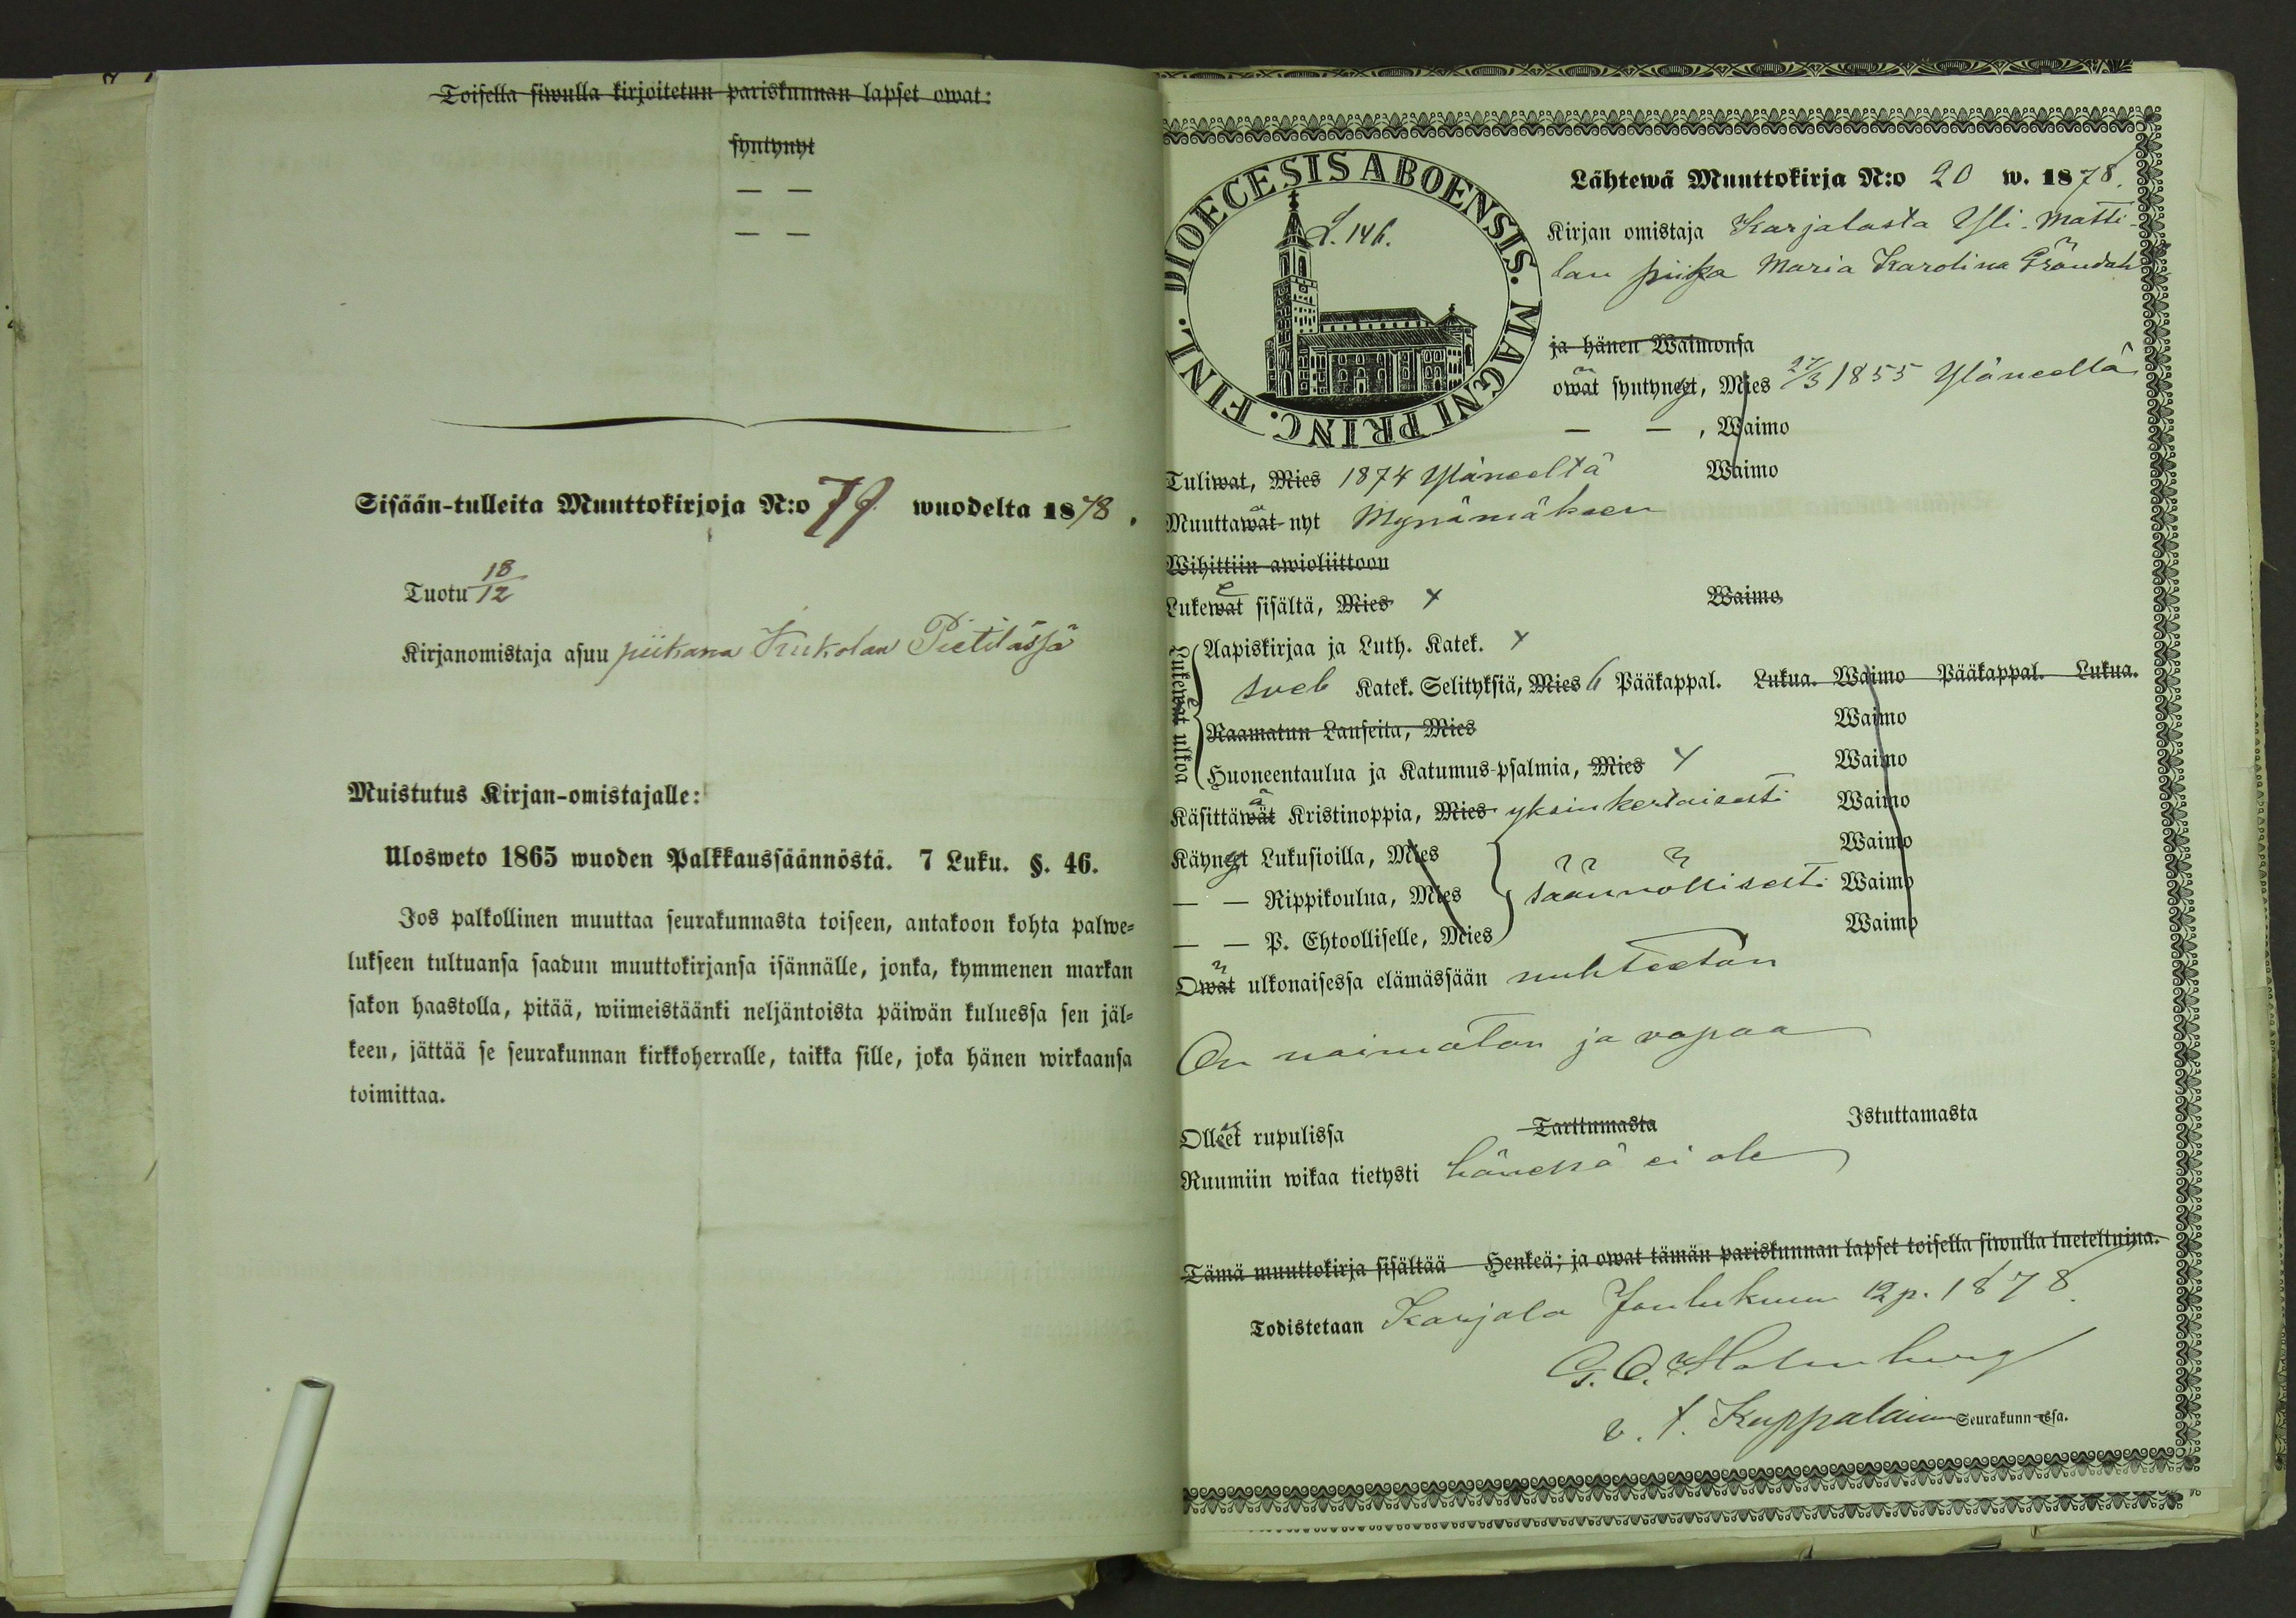 Toisella siwulla kirjoitetun pariskunnan lapset owat:
syntynyt
— —
— —
Sisään-tulleita Muuttokirjoja N:o 79 wuodelta 1878.
Tuotu 18/12
Kirjanomistaja asuu piikana Kukolan Pietilässä
Muistutus Kirjan-omistajalle:
Ulosweto 1865 wuoden Palkkaussäännöstä. 7 Luku. §. 46.
Jos palkollinen muuttaa seurakunnasta toiseen, antakoon kohta palwe-
lukseen tultuansa saadun muuttokirjansa isännälle, jonka, kymmenen markan
sakon haastolla, pitää, wiimeistäänki neljäntoista päiwän kuluessa sen jäl-
keen, jättää se seurakunnan kirkkoherralle, taikka sille, joka hänen wirkaansa
toimittaa.
DIOECESIS ABOENSIS. MAGNI PRINC. FINL.
L. 146.
Lähtewä Muuttokirja N:o 20 w. 1878.
Kirjan omistaja Karjalasta Yli-Matti-
lan piika Maria Karolina Gröndahl
ja hänen Waimonsa
owat syntyneet, Mies 27/3 1855 Yläneellä
— — , Waimo
Tuliwat, Mies 1874 Yläneeltä Waimo
Muuttawat nyt Mynämäkeen
Wihittiin awioliittoon
Lukewat sisältä, Mies + Waimo
Lukewat ulkoa
Aapiskirjaa ja Luth. Katek. +
Sveb Katek. Selityksiä, Mies 6 Pääkappal. Lukua. Waimo Pääkappal. Lukua.
Raamatun Lauseita, Mies Waimo
Huoneentaulua ja Katumus-psalmia, Mies + Waimo
Käsittäwät Kristinoppia, Mies yksinkertaisesti Waimo
Käyneet Lukusioilla, Mies Waimo
— — Rippikoulua, Mies säännöllisesti Waimo
— — P. Ehtoolliselle, Mies Waimo
Owat ulkonaisessa elämässään nuhteeton
On naimaton ja vapaa
Olleet rupulissa Tarttumasta Istuttamasta
Ruumiin wikaa tietysti hänessä ei ole
Tämä muuttokirja sisältää Henkeä; ja owat tämän pariskunnan lapset toisella siwulla lueteltuina.
Todistetaan Karjala Joulukuun 12 p. 1878.
G. O. Holmberg
v. t. Kappalainen Seurakunn-ssa.